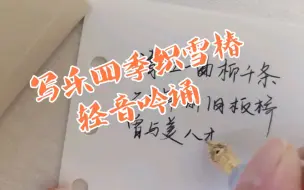 写乐四季织雪椿
轻音吟诵
一曲柳千条
旧板桥
曾与美人